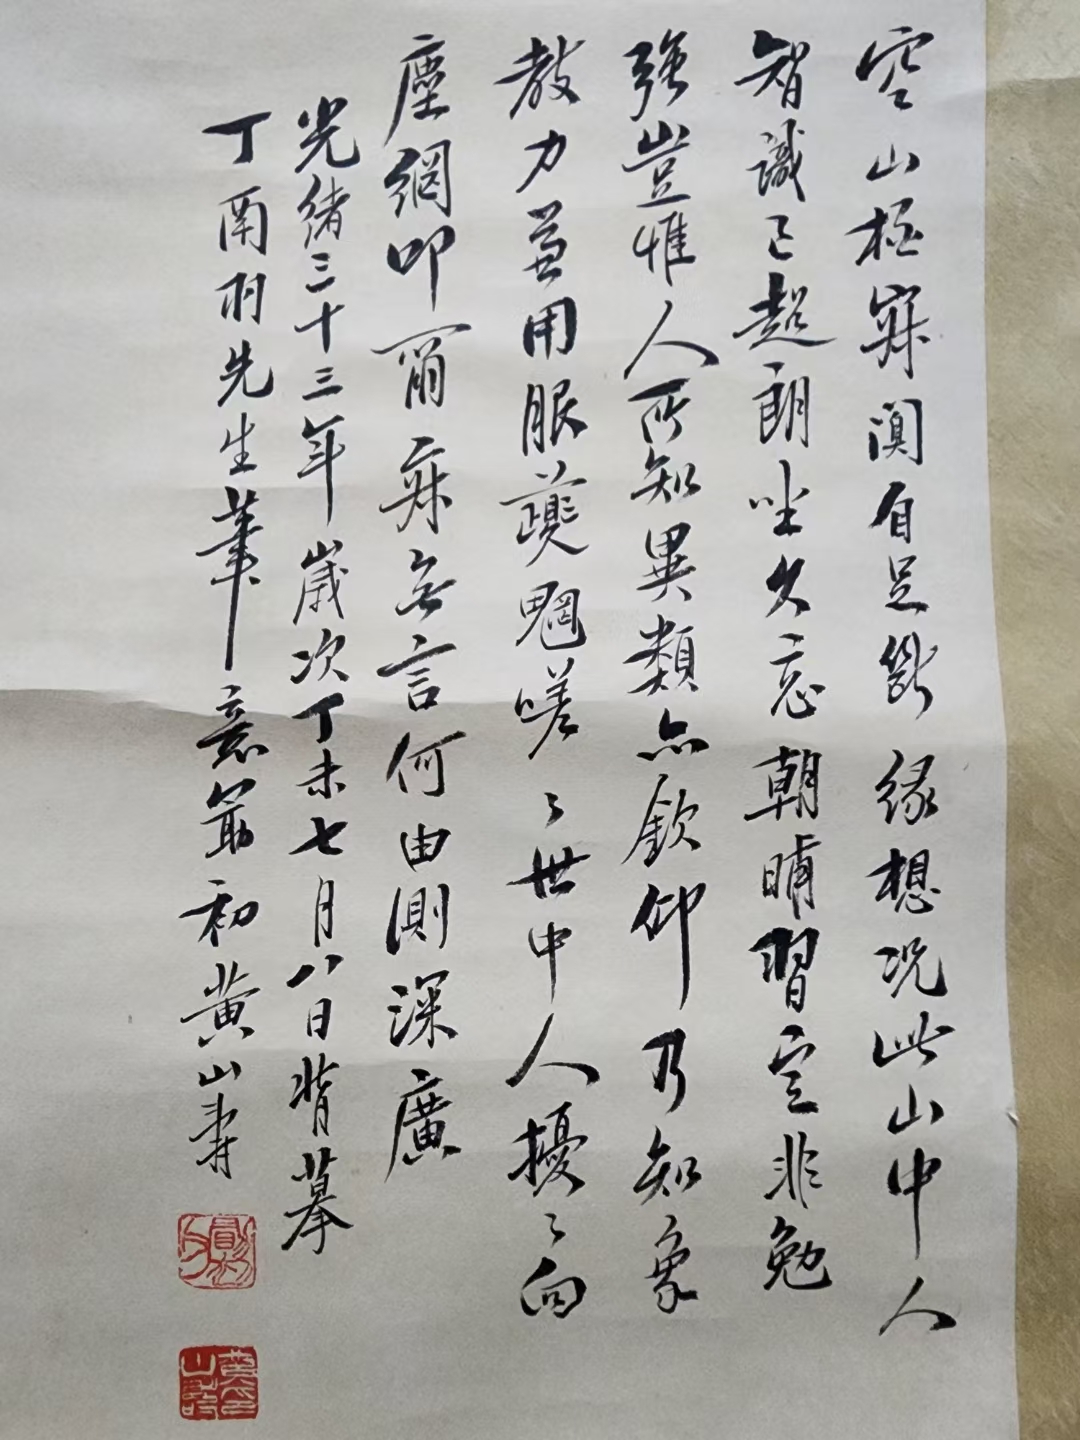 空山極寂闃自足斷緣想況此山中人
智識已超朗坐久忘朝晡習定非勉
強豈惟人所知異類亦欽仰乃知象
教力兼用服夔魍嗟〻世中人擾〻向
塵網叩爾寂無言何由測深廣
光緒三十三年歲次丁未七月八日背摹
丁南羽先生筆意勗初黃山壽
黃山壽